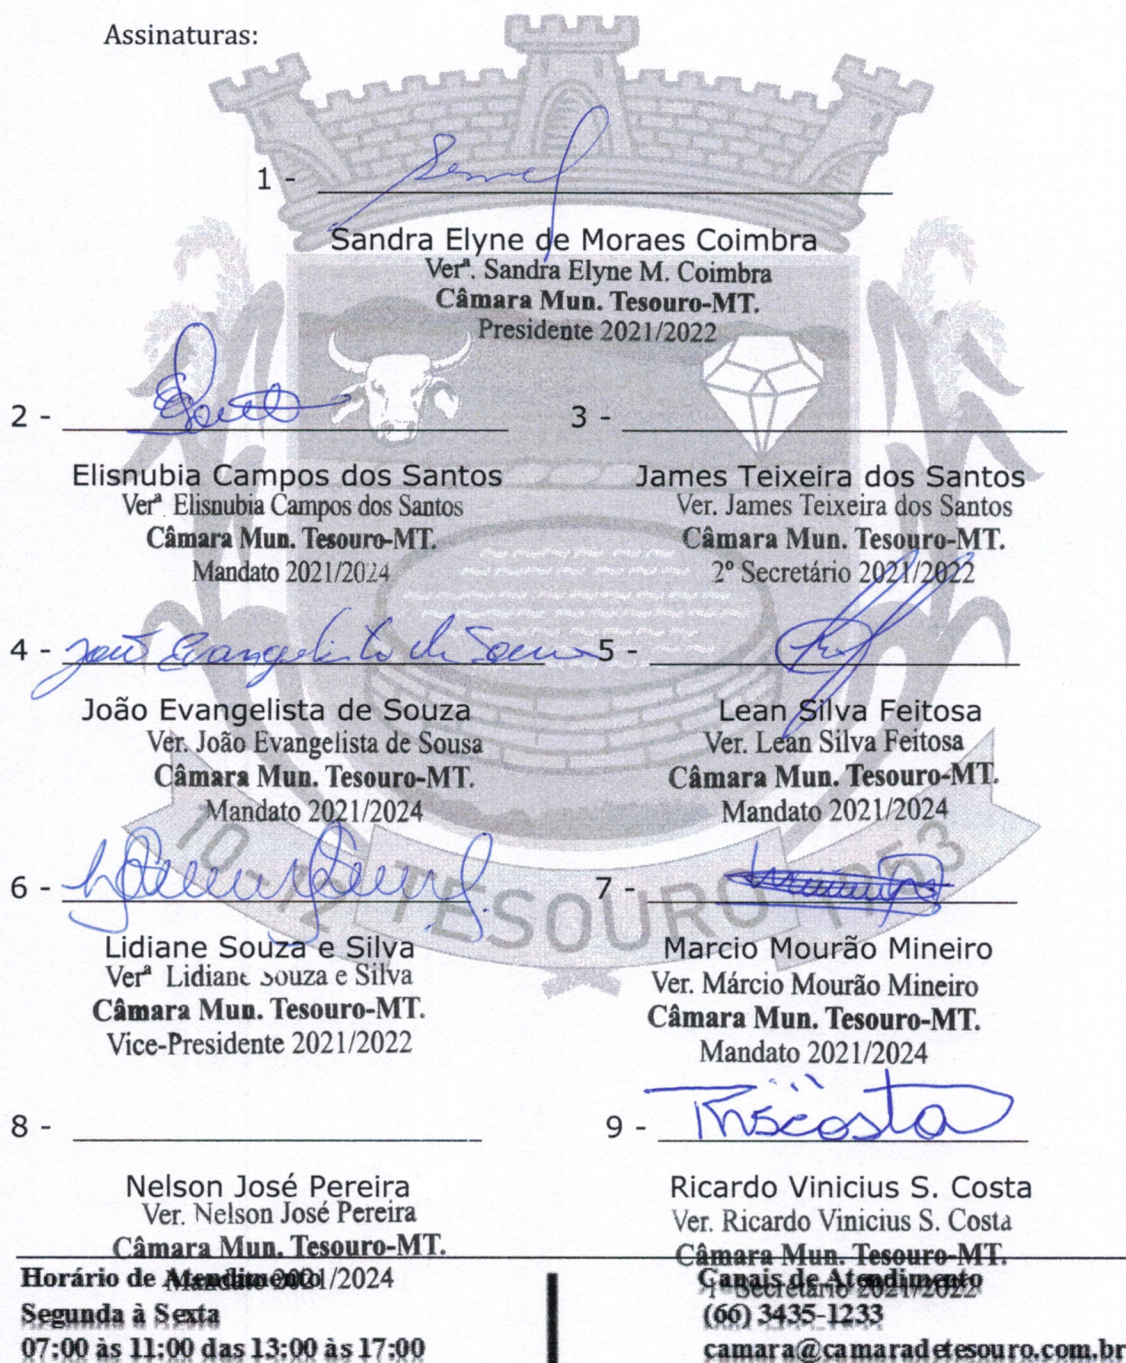 Assinaturas:
1 -
Sandra Elyne de Moraes Coimbra
Verª. Sandra Elyne M. Coimbra
Câmara Mun. Tesouro-MT.
Presidente 2021/2022
2 -
Elisnubia Campos dos Santos
Verª Elisnubia Campos dos Santos
Câmara Mun. Tesouro-MT.
Mandato 2021/2024
3 -
James Teixeira dos Santos
Ver. James Teixeira dos Santos
Câmara Mun. Tesouro-MT.
2º Secretário 2021/2022
4 - João Evangelista de Sousa
João Evangelista de Souza
Ver. João Evangelista de Sousa
Câmara Mun. Tesouro-MT.
Mandato 2021/2024
5 -
Lean Silva Feitosa
Ver. Lean Silva Feitosa
Câmara Mun. Tesouro-MT.
Mandato 2021/2024
6 -
Lidiane Souza e Silva
Verª Lidiane Souza e Silva
Câmara Mun. Tesouro-MT.
Vice-Presidente 2021/2022
7 -
Marcio Mourão Mineiro
Ver. Márcio Mourão Mineiro
Câmara Mun. Tesouro-MT.
Mandato 2021/2024
10 12 TESOURO 1953
8 -
Nelson José Pereira
Ver. Nelson José Pereira
Câmara Mun. Tesouro-MT.
Mandato 2021/2024
9 -
Ricardo Vinicius S. Costa
Ver. Ricardo Vinicius S. Costa
Câmara Mun. Tesouro-MT.
1º Secretário 2021/2022
Horário de Atendimento
Segunda à Sexta
07:00 às 11:00 das 13:00 às 17:00
Canais de Atendimento
(66) 3435-1233
camara@camaradetesouro.com.br